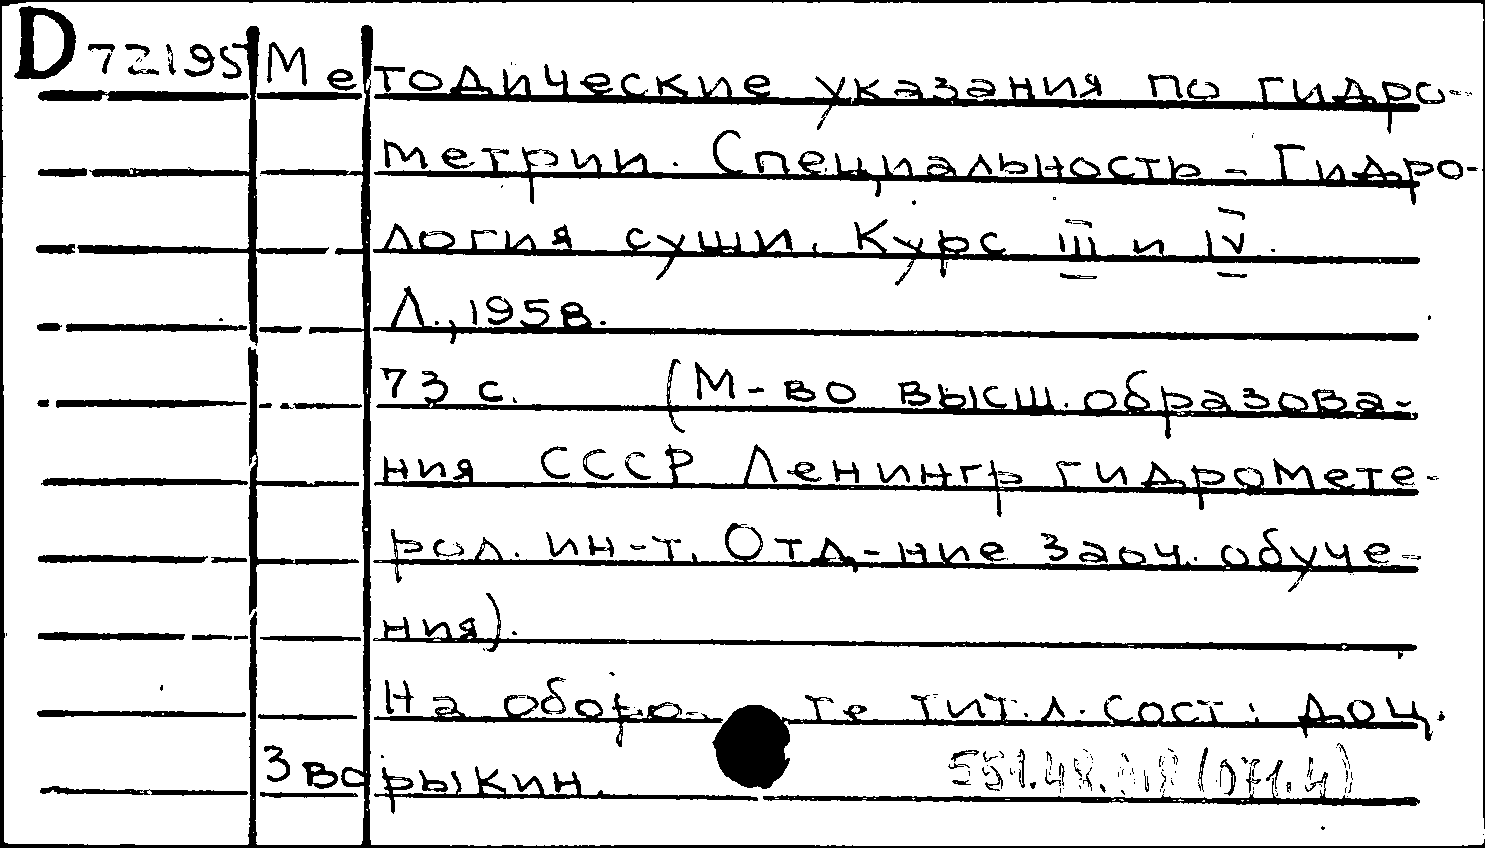 D 72195 Методические указания по гидро-
метрии. Специальность - Гидро-
логия суши. Курс III и IV.
Л., 1958.
73 с. (М-во высш. образова-
ния СССР Ленингр гидромете-
рол. ин-т. Отд-ние заоч. обуче-
ния).
На оборо- те тит.л. сост: доц.
Зворыкин.